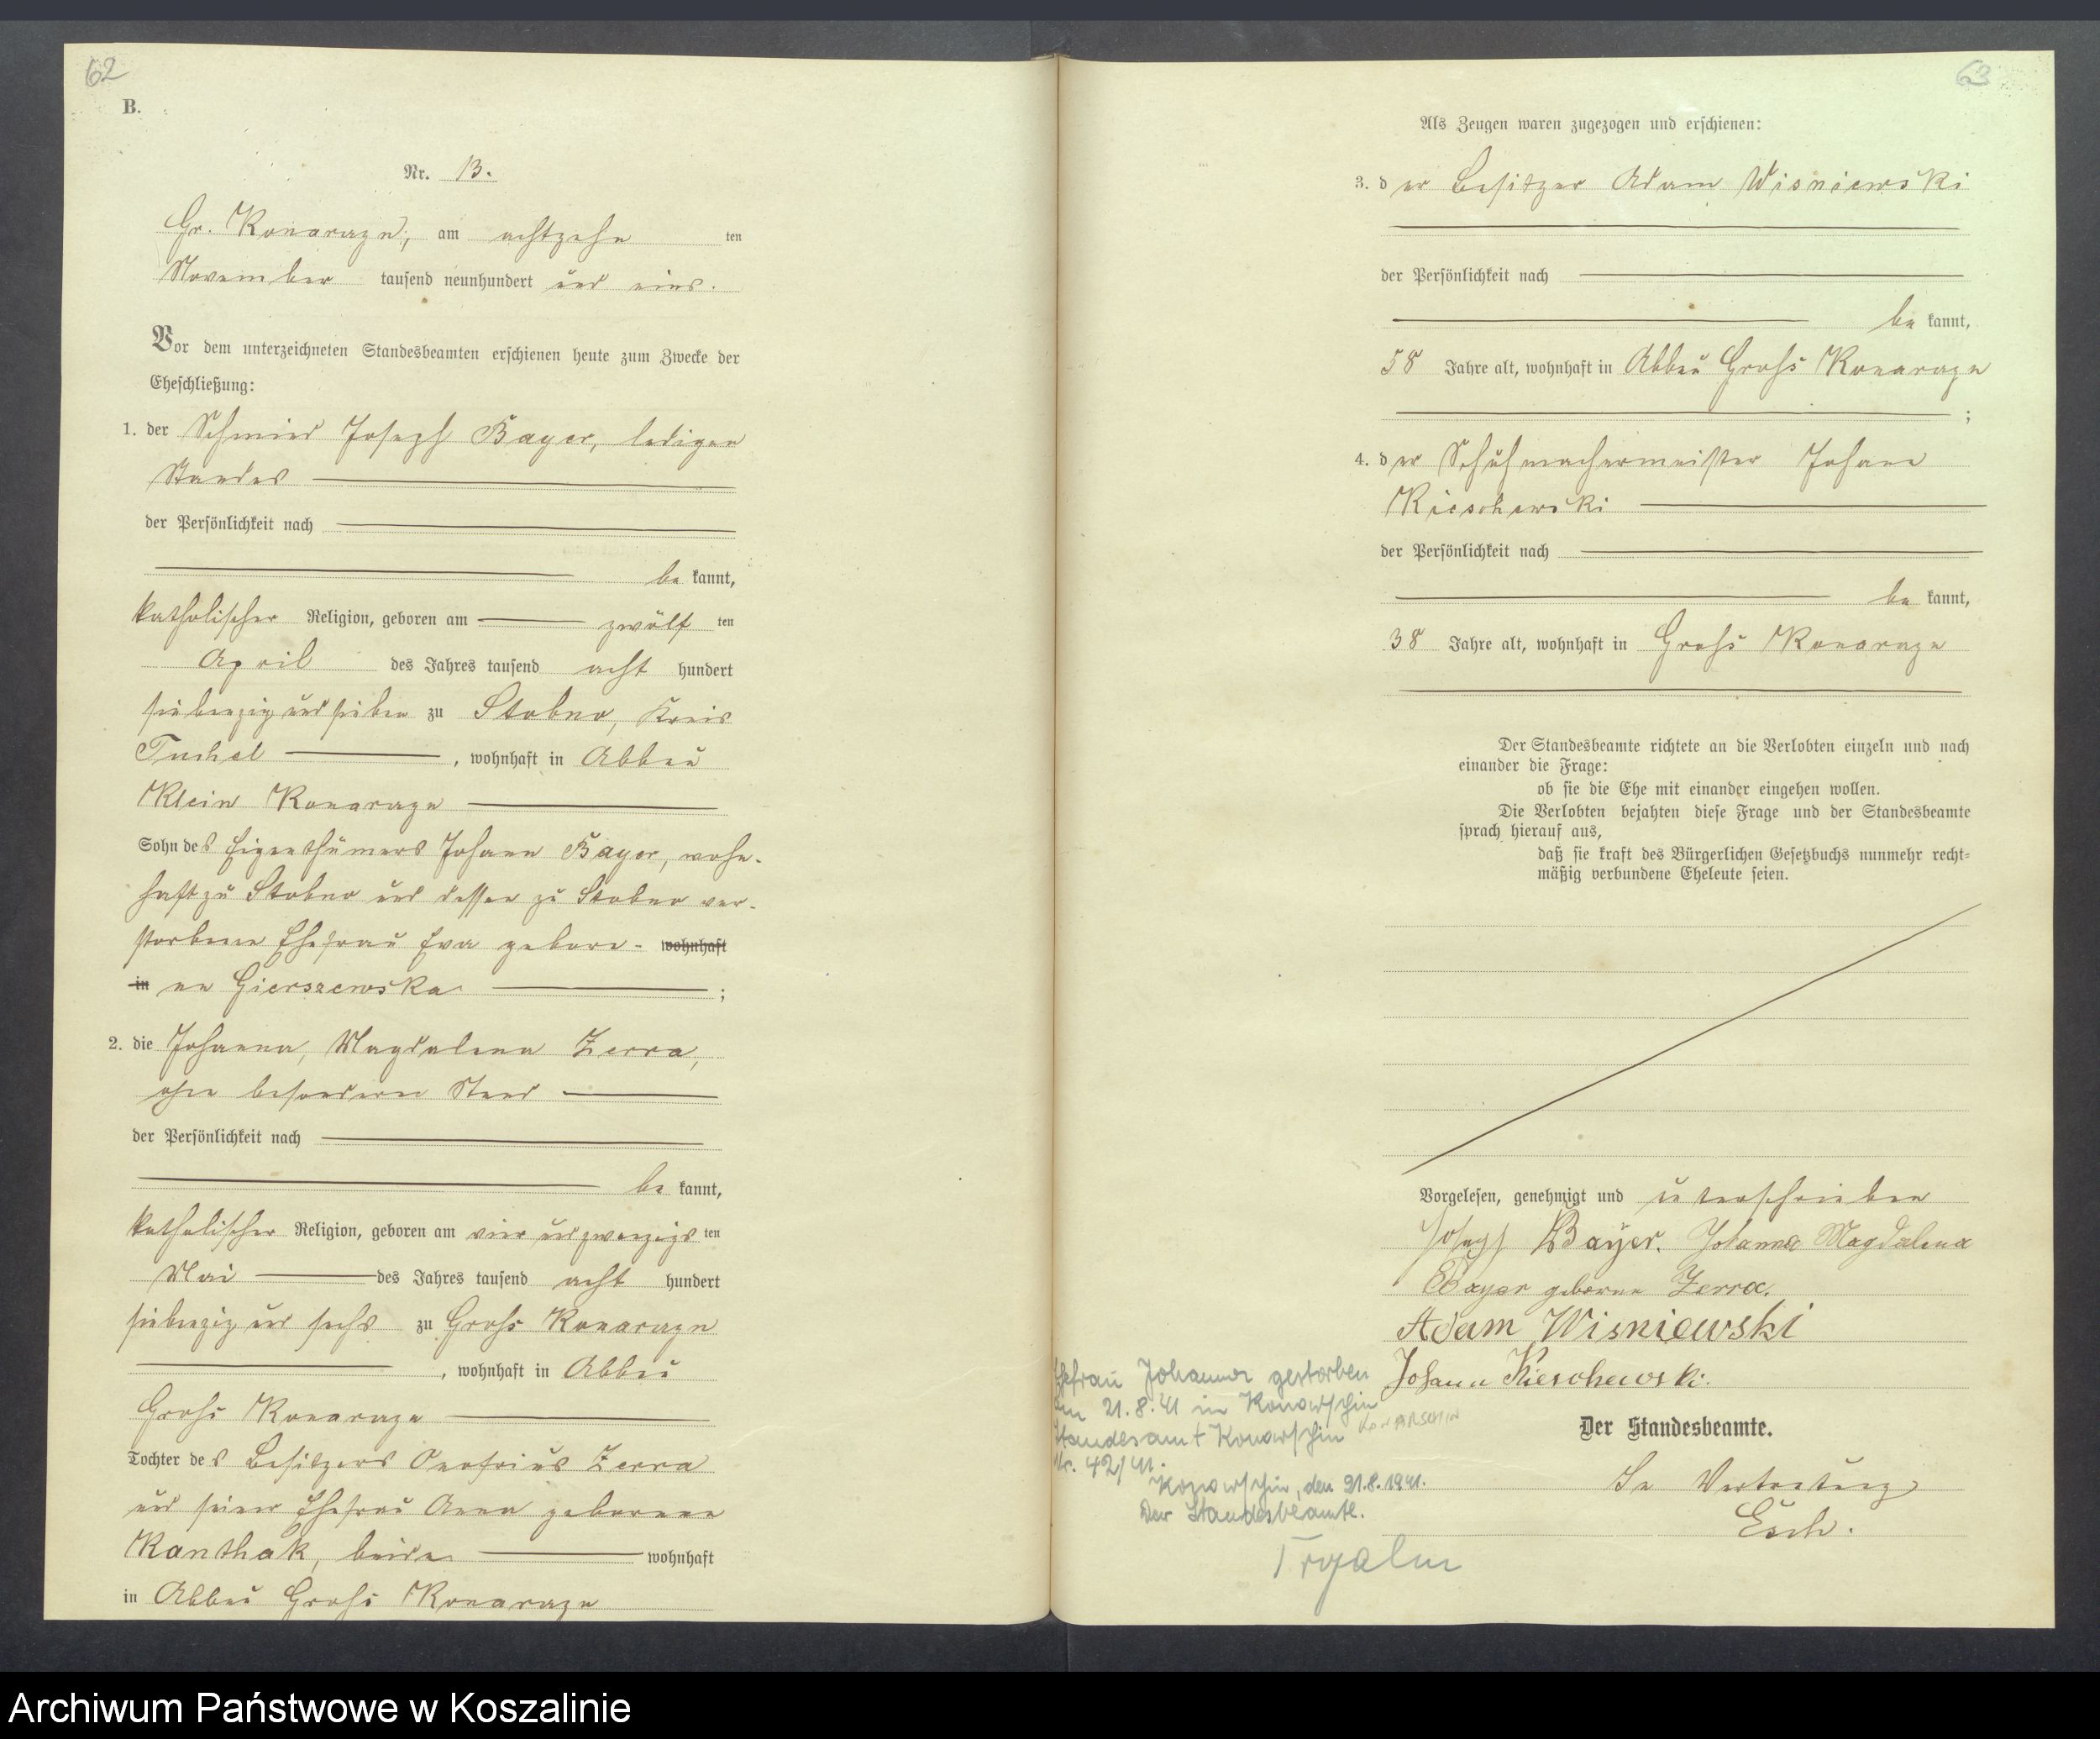 62
B.
Nr. 13.
Gr. Konarzyn, am achtzehn ten
November tausend neunhundert und eins.
Vor dem unterzeichneten Standesbeamten erschienen heute zum Zwecke der
Eheschließung:
1. der Schmied Joseph Bayer, ledigen
Standes
der Persönlichkeit nach
be kannt,
katholischer Religion, geboren am zwölf ten
April des Jahres tausend acht hundert
siebenzig und sieben zu Stobno, Kreis
Tuchel, wohnhaft in Abbau
Klein Konarzyn
Sohn des Eigenthümers Johann Bayer, wohn-
haft zu Stobno und dessen zu Stobno ver-
storbene Ehefrau Eva gebore- wohnhaft
in ne Gierszewska ;
2. die Johanna, Magdalena Zerra,
ohne besonderen Stand
der Persönlichkeit nach
be kannt,
katholischer Religion, geboren am vier und zwanzigs ten
Mai des Jahres tausend acht hundert
siebenzig und sechs zu Groß Konarzyn
, wohnhaft in Abbau
Groß Konarzyn
Tochter des Besitzers Onofrius Zerra
und seiner Ehefrau Anna geborene
Kanthak, beide wohnhaft
in Abbau Groß Konarzyn
63
Als Zeugen waren zugezogen und erschienen:
3. der Besitzer Adam Wisniewski
der Persönlichkeit nach
be kannt,
58 Jahre alt, wohnhaft in Abbau Groß Konarzyn
;
4. der Schuhmachermeister Johann
Kieschewski
der Persönlichkeit nach
be kannt,
38 Jahre alt, wohnhaft in Groß Konarzyn
Der Standesbeamte richtete an die Verlobten einzeln und nach
einander die Frage:
ob sie die Ehe mit einander eingehen wollen.
Die Verlobten bejahten diese Frage und der Standesbeamte
sprach hierauf aus,
daß sie kraft des Bürgerlichen Gesetzbuchs nunmehr recht-
mäßig verbundene Eheleute seien.
Vorgelesen, genehmigt und unterschrieben
Joseph Bayer. Johanna Magdalena
Bayer geborene Zerra.
Adam Wisniewski
Johann Kieschewski.
Der Standesbeamte.
In Vertretung
Esch.
Ehefrau Johanna gestorben
am 21.8.41 in Konarschin
KONARSCHIN
Standesamt Konarschin
Nr. 42/41.
Konarschin, den 21.8.1941.
Der Standesbeamte.
Archiwum Państwowe w Koszalinie